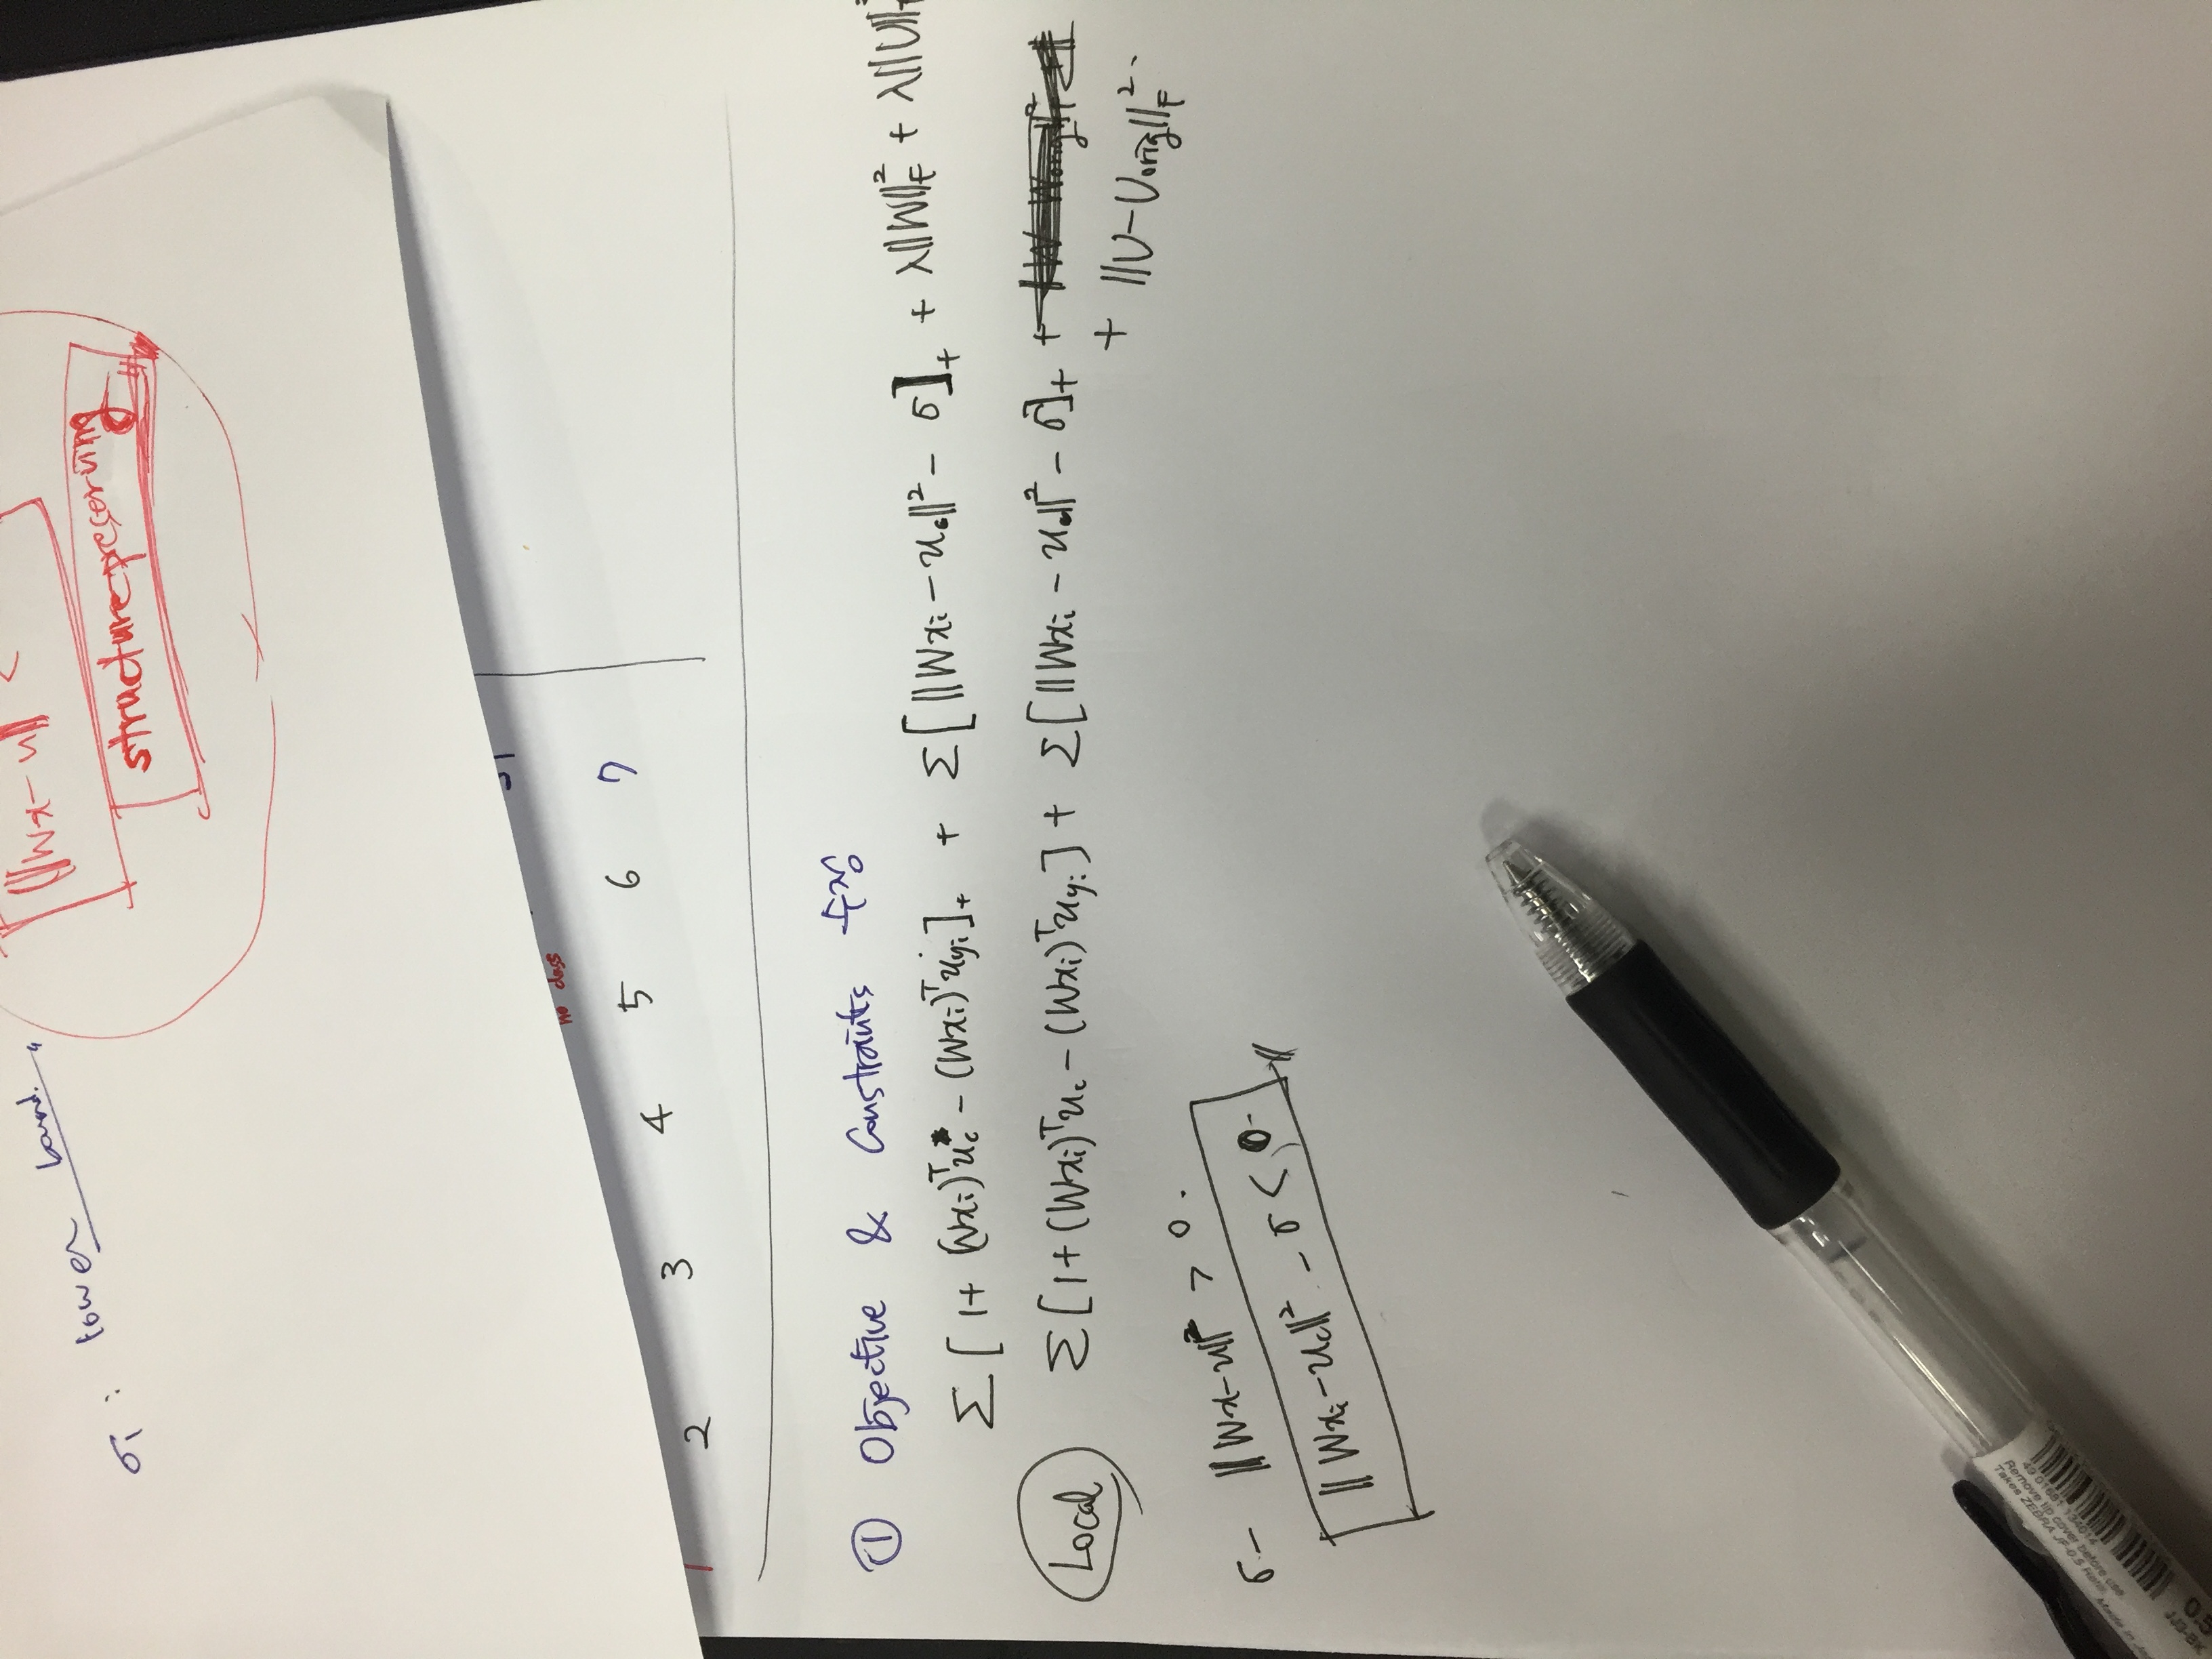 σ₁ : lower bound.
‖Wx-u‖ <
structure preserving
31
no class
1 2 3 4 5 6 7
① Objective & Constraints 수정
Σ[1+(Wxᵢ)ᵀu_c - (Wxᵢ)ᵀu_yᵢ]₊ + Σ[‖Wxᵢ-u_c‖² - σ]₊ + λ‖W‖²_F + λ‖U‖
Local Σ[1+(Wxᵢ)ᵀu_c - (Wxᵢ)ᵀu_yᵢ] + Σ[‖Wxᵢ - u_c‖² - σ]₊ +
+ ‖U-U_orig‖²_F.
σ - ‖Wx-u‖² > 0.
‖Wxᵢ-u_c‖² - σ < 0.
Remove tip cover before use.
Takes ZEBRA JF-0.5 Refill.
0.5